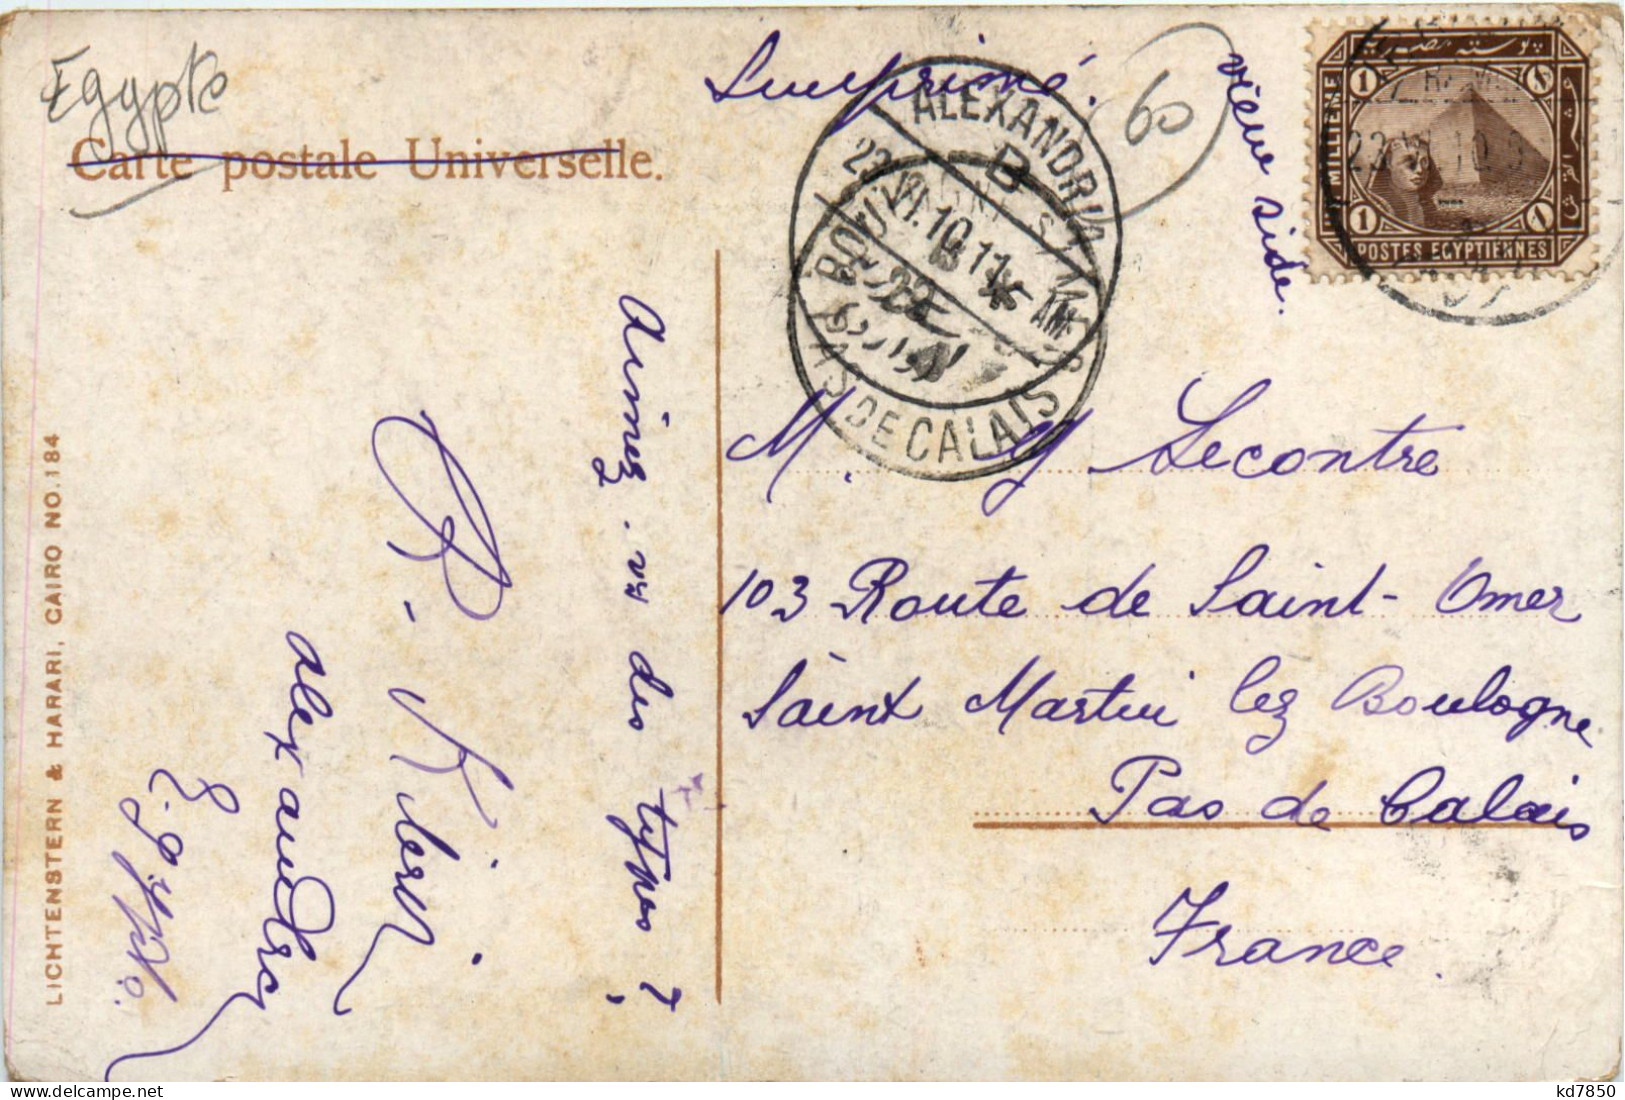 Egypte
Carte postale Universelle.
Imprimé.
60
view side.
بوستة مصرية
1 MILLIEME 1
POSTES EGYPTIENNES
ALEXANDRIA
B
23.VI.10 11 AM
BOULOGNE S. MER
PAS DE CALAIS
M. M Lecontre
103 Route de Saint-Omer
Saint Martin lez Boulogne
Pas de Calais
France.
Aimez-vs des types?
Alexandrie
Egypte.
LICHTENSTERN & HARARI, CAIRO NO. 184
kd7850